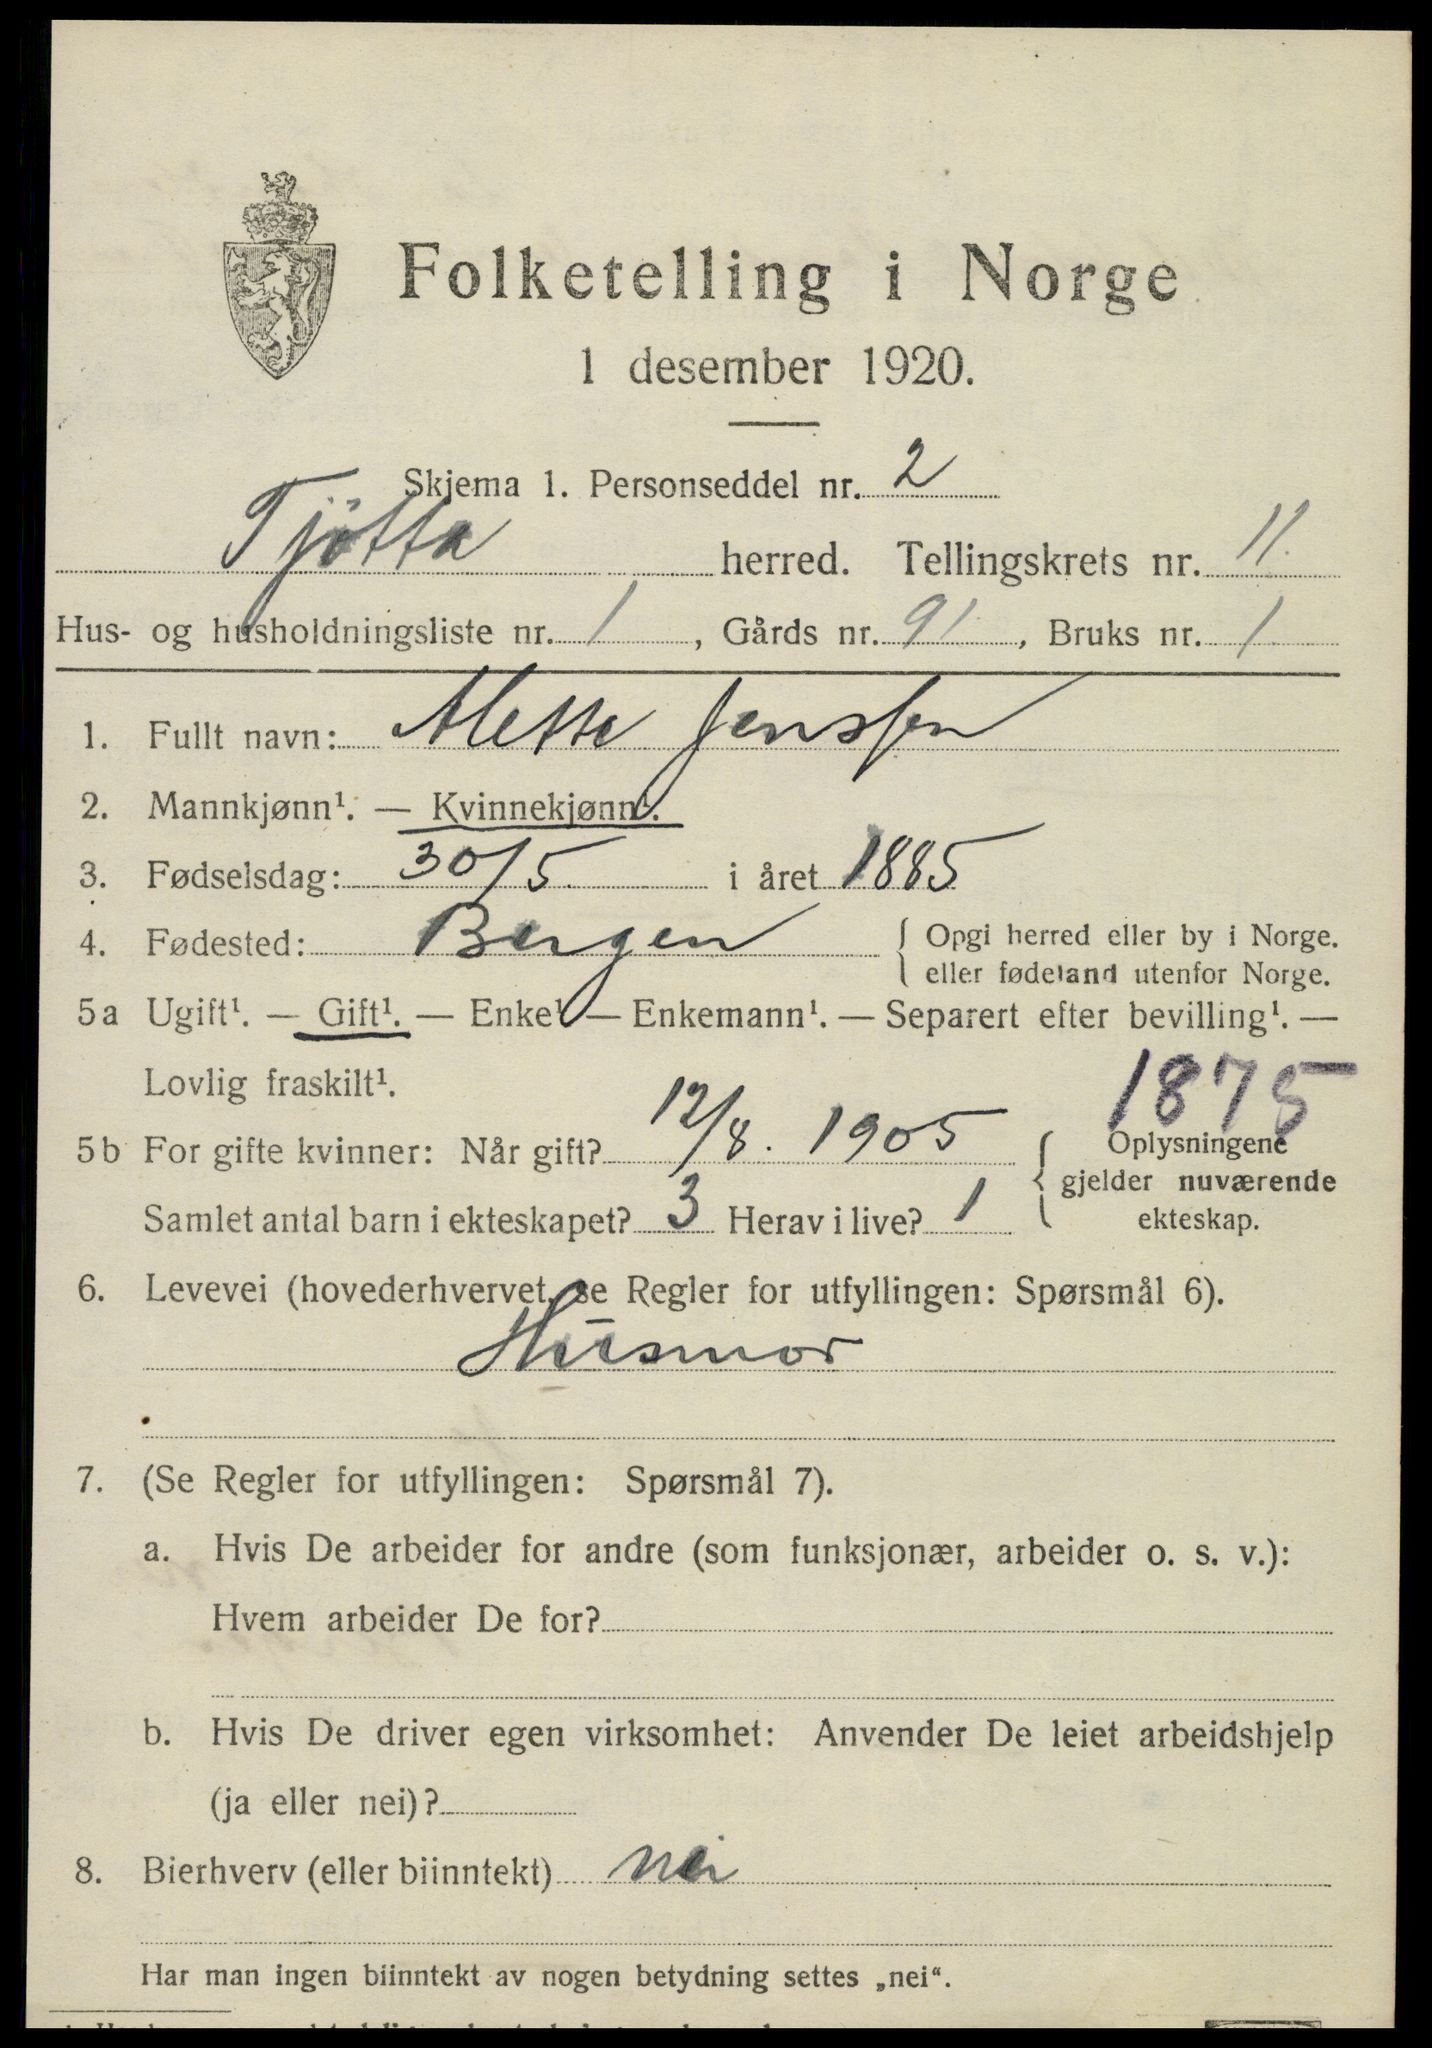 Folketelling i Norge
1 desember 1920.
Skjema 1. Personseddel nr. 2
Tjötta herred. Tellingskrets nr. 11.
Hus- og husholdningsliste nr. 1, Gårds nr. 91, Bruks nr. 1
1. Fullt navn: Alette Jenssen
2. Mannkjønn¹. — Kvinnekjønn¹.
3. Fødselsdag: 30/5 i året 1885
4. Fødested: Bergen { Opgi herred eller by i Norge.
eller fødeland utenfor Norge.
5a Ugift¹. — Gift¹. — Enke¹ — Enkemann¹. — Separert efter bevilling¹. —
Lovlig fraskilt¹.
1875
5b For gifte kvinner: Når gift? 12/8. 1905 { Oplysningene
gjelder nuværende
Samlet antal barn i ekteskapet? 3 Herav i live? 1 ekteskap.
6. Levevei (hovederhvervet, se Regler for utfyllingen: Spørsmål 6).
Husmor
7. (Se Regler for utfyllingen: Spørsmål 7).
a. Hvis De arbeider for andre (som funksjonær, arbeider o. s. v.):
Hvem arbeider De for?
b. Hvis De driver egen virksomhet: Anvender De leiet arbeidshjelp
(ja eller nei)?
8. Bierhverv (eller biinntekt) nei
Har man ingen biinntekt av nogen betydning settes „nei“.